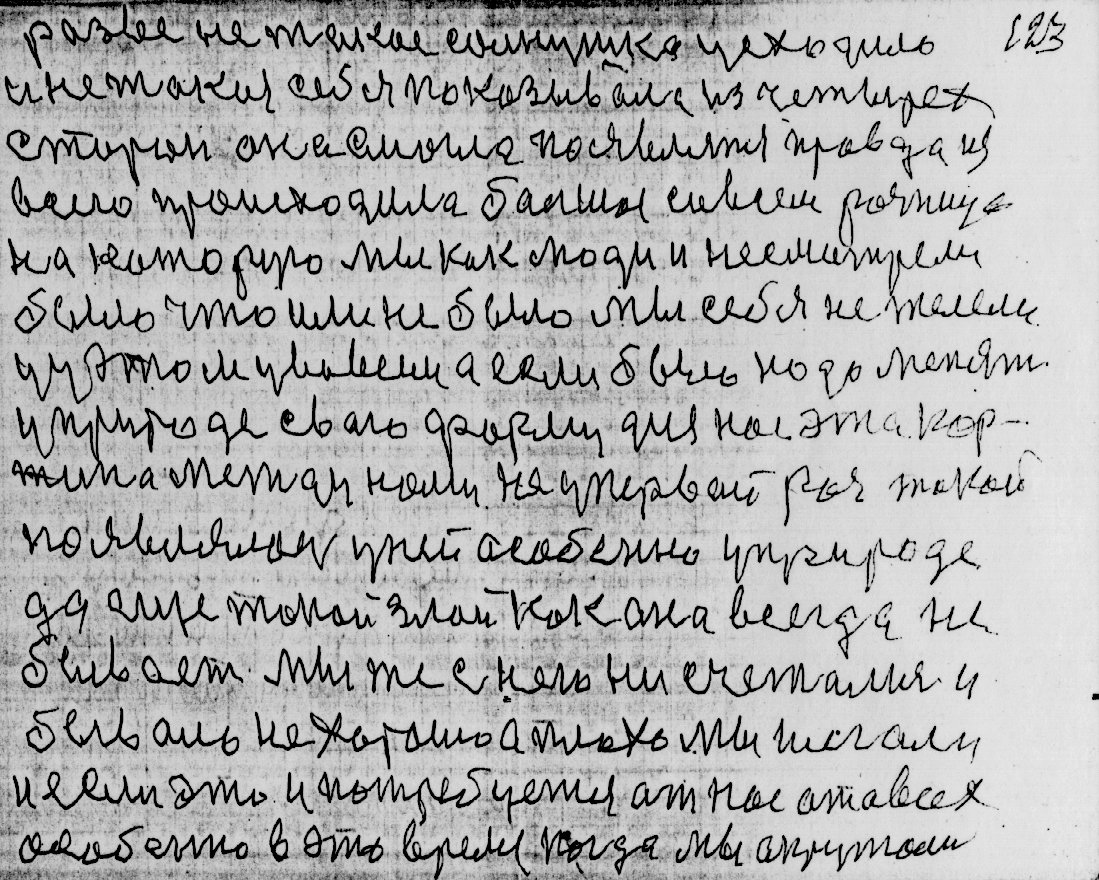 разве не такое солнушка уеходило 123
и не такия себя показывала из четырех
сторон она смогла появлятя правда из
всего происходила балшы совсем рязница
на которую мы как люди и несматрели
было что или не было мы себя не жалели
и у этом увовсем а если было надо менят
у природе сваю форму для нас эта кар-
тина между нами ня упервой раз такой
появлялась у ней асобенно у природе
да еще такой злой как ана всегда не
бывает мы же с ней ни счеталися и
бывало не хорошо а плохо мы шагали
и если это и потребуется ат нас ата всех
асобенно в это время когда мы